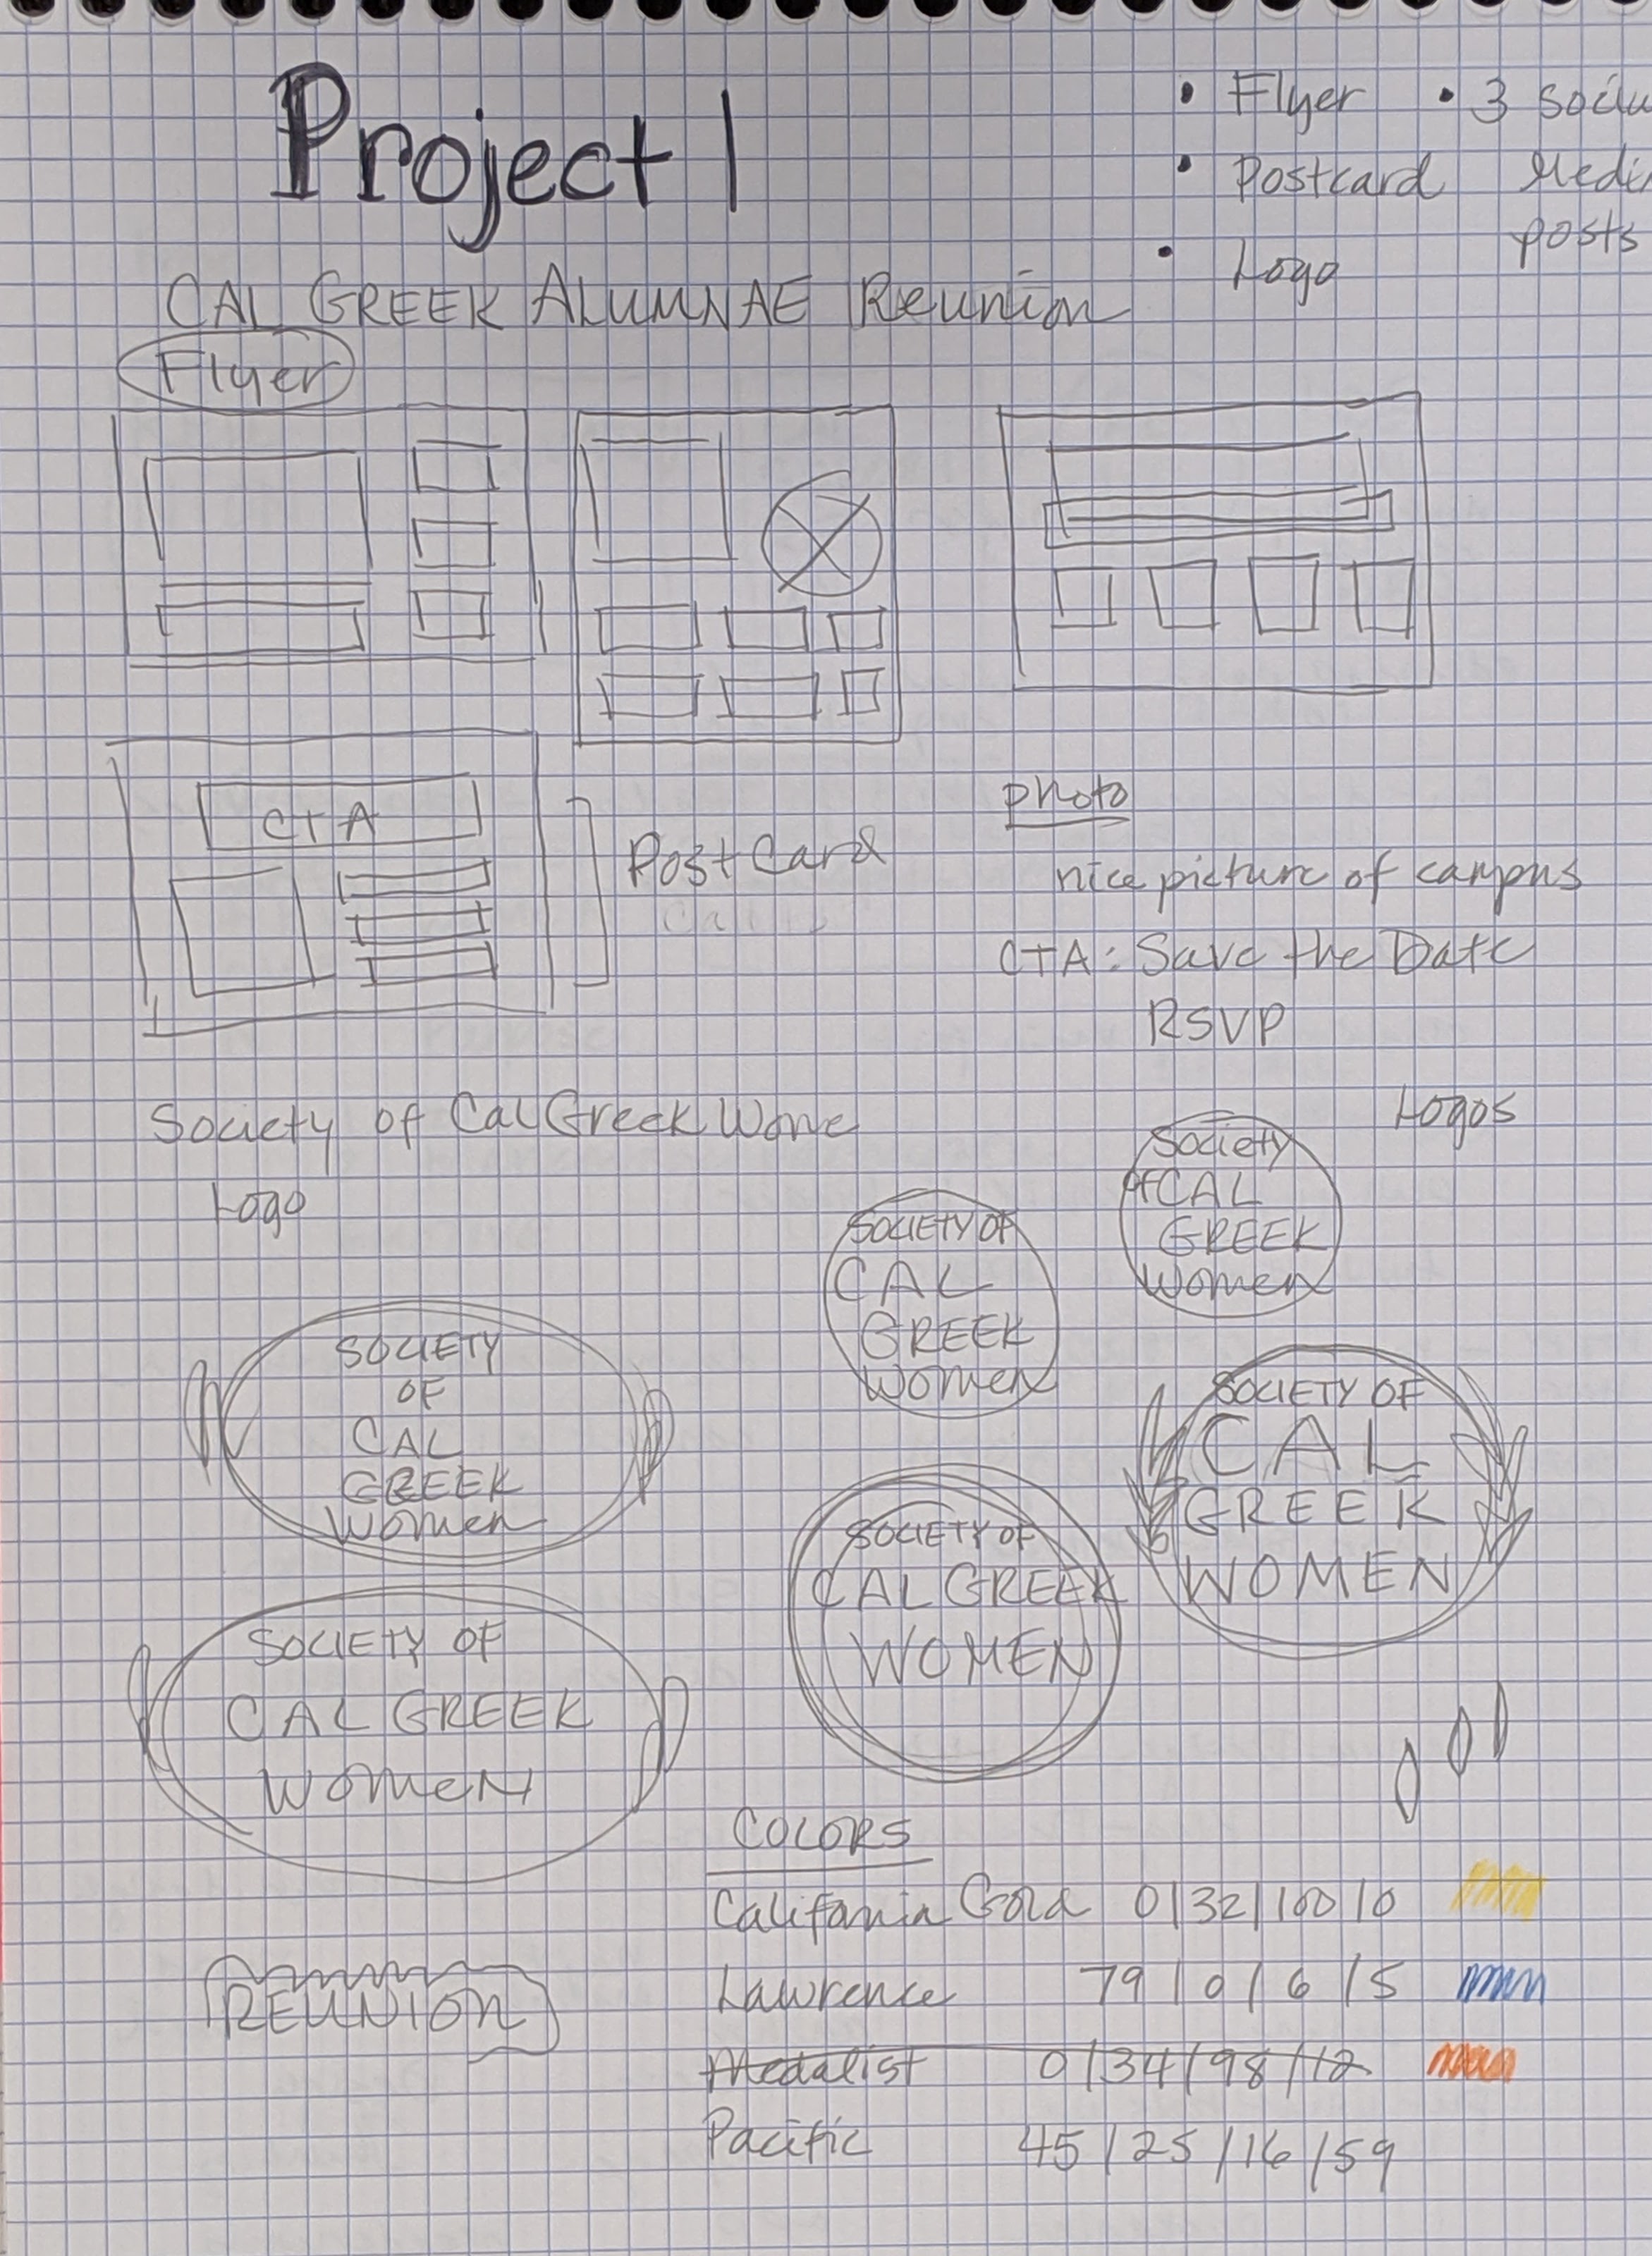 Project 1
• Flyer
• 3 socia
• Postcard
Media
posts
• Logo
CAL GREEK ALUMNAE Reunion
Flyer
CTA
PostCard
photo
nice picture of campus
CTA: Save the Date
RSVP
Society of Cal Greek Wome
Logo
Logos
Society
of CAL
GREEK
Women
SOCIETY OF
CAL
GREEK
Women
SOCIETY
OF
CAL
GREEK
Women
SOCIETY OF
CAL
GREEK
WOMEN
SOCIETY OF
CAL GREEK
WOMEN
SOCIETY OF
CAL GREEK
WOMEN
COLORS
California Gold 0/32/100/0
Lawrence 79/0/6/5
Medalist 0/34/98/12
Pacific 45/25/16/59
REUNION